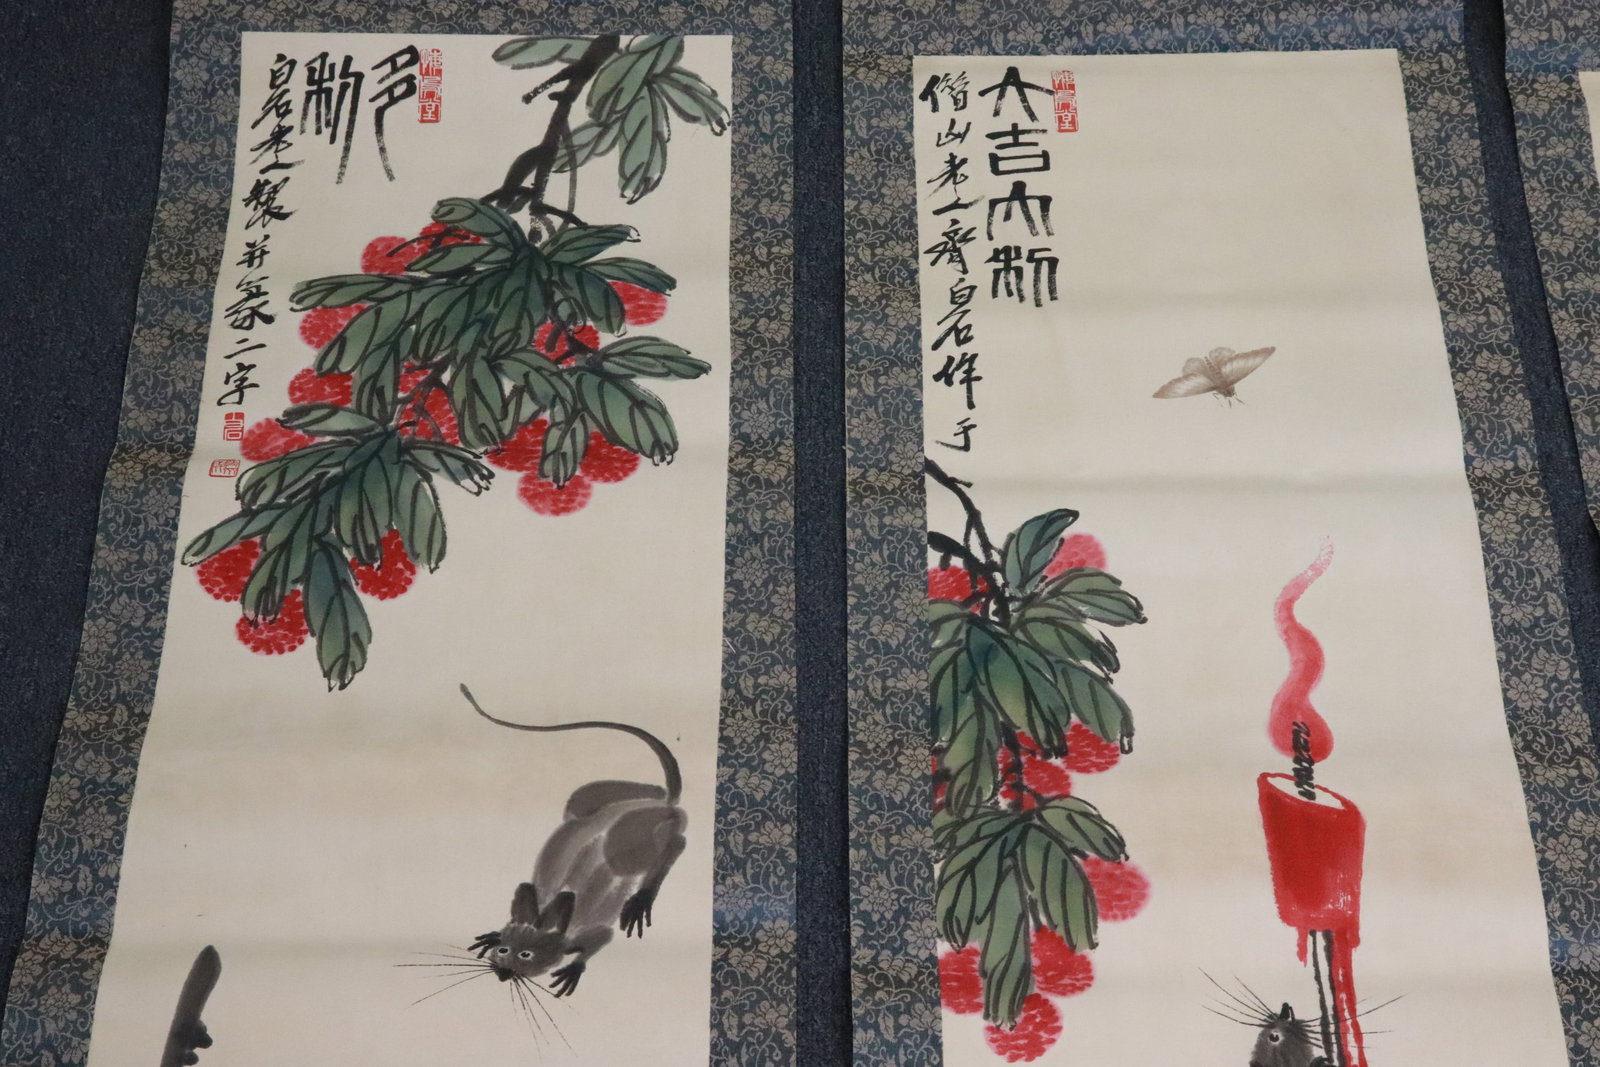 悔烏堂
多利
白石老人製并篆二字
悔烏堂
大吉大利
借山老人齊白石作于